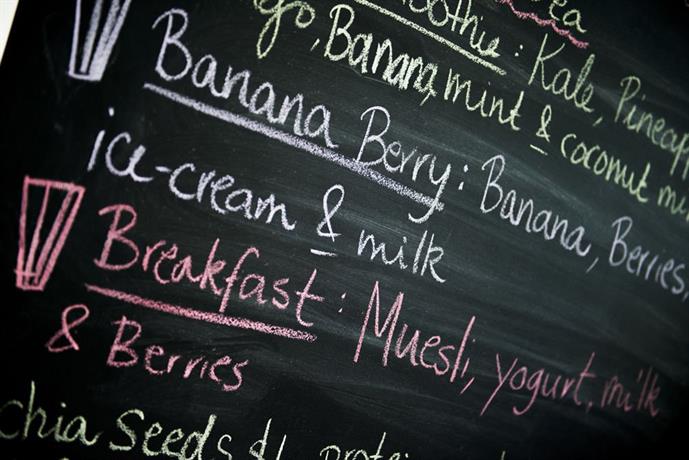 Smoothie: Kale, Pineapp
go, Banana, mint & coconut mi
Banana Berry: Banana, Berries,
ice-cream & milk
Breakfast: Muesli, yogurt, milk
& Berries
chia Seeds &